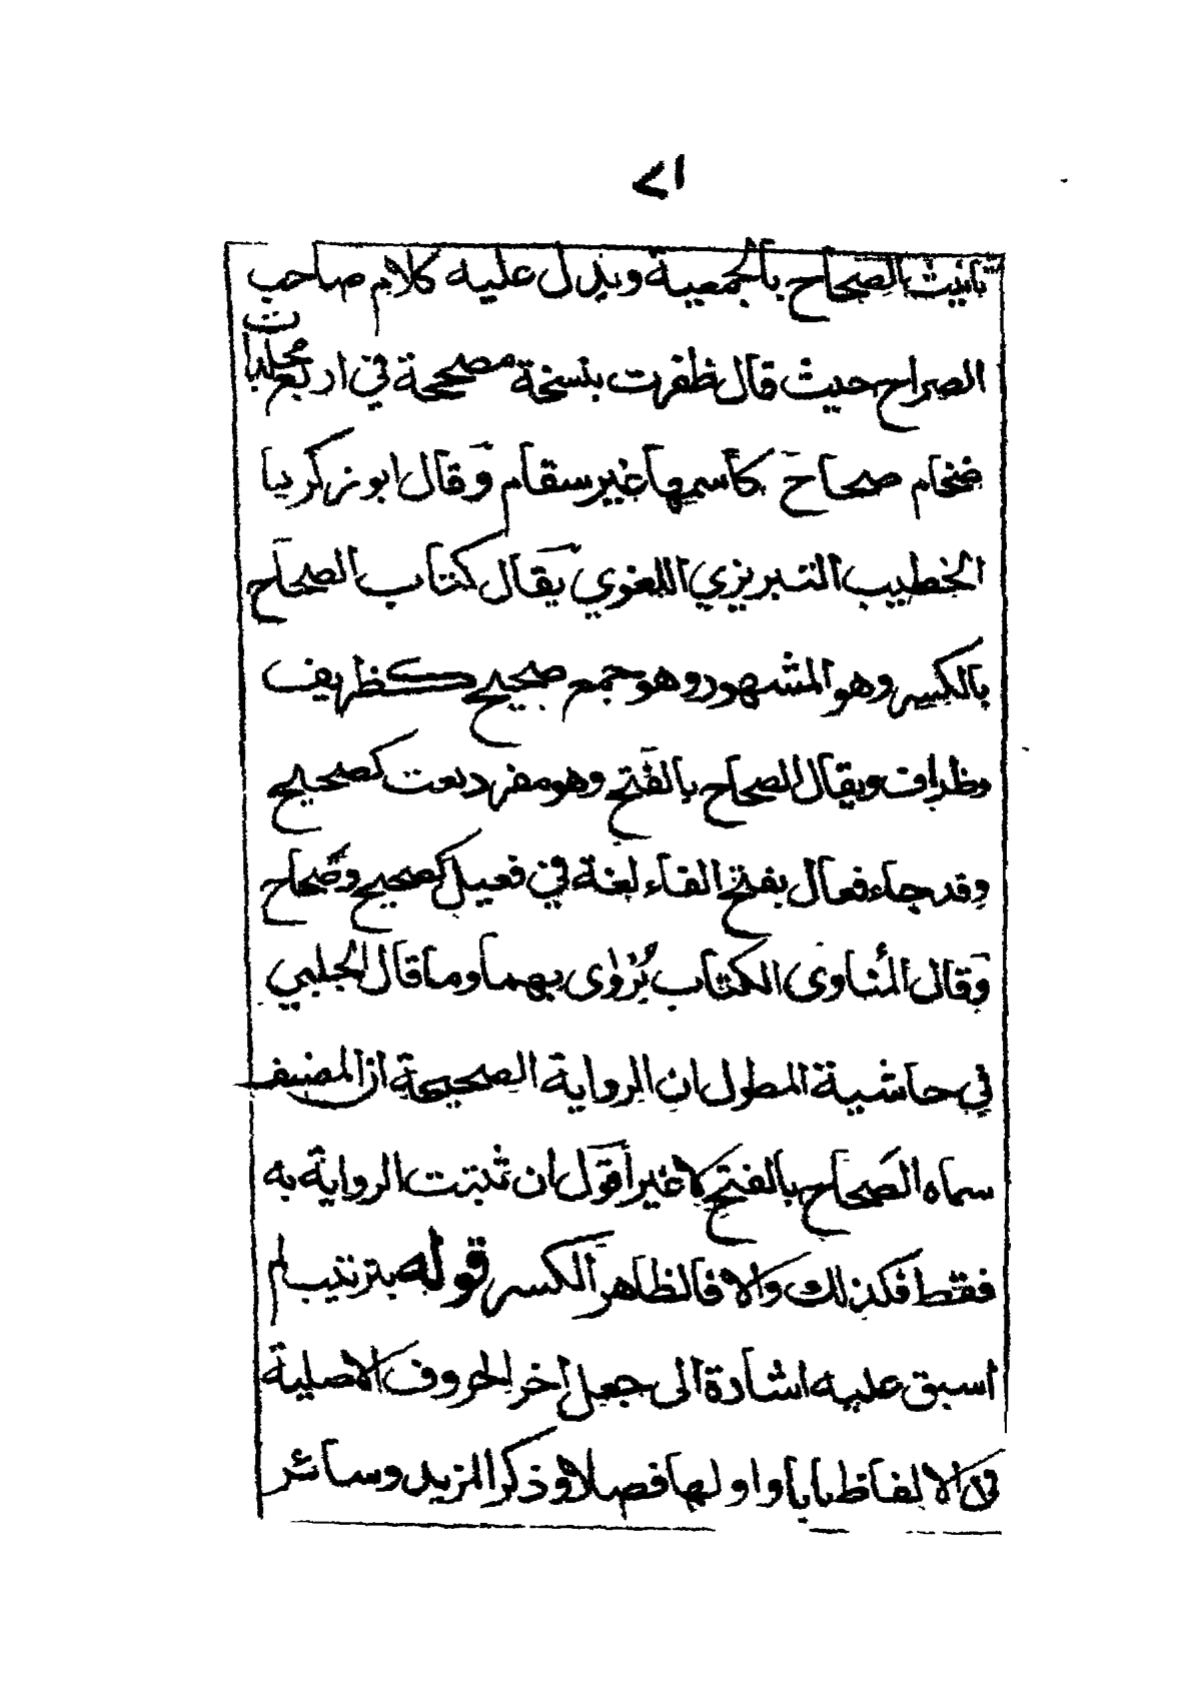 ٢١
تأنيث بالصحاح بالجمعية ويدل عليه كلام صاحب
الصراح حيث قال ظفرت بنسخة مصححة في اربع مجلدات
ضخام صحاح كأسمها غير سقام وقال ابو زكريا
الخطيب التبريزي اللغوي يقال كتاب الصحاح
بالكسر وهو المشهور وهو جمع صحيح كظريف
وظراف ويقال الصحاح بالفتح وهو مفرد نعت كصحيح
وقد جاء فعال بفتح الفاء لغة في فعيل كصحيح وصحاح
وقال المناوى الكتاب يُروٰى بهما وما قال الجلبي
في حاشية المطول ان الرواية الصحيحة ان المصنف
سماه الصَحاح بالفتح لا غير أقول ان ثبتت الرواية به
فقط فكذلك والا فالظاهر الكسر قوله بترتيب لم
اسبق عليه اشارة الى جعل أخر الحروف الاصلية
في الالفاظ بابا واولها فصلا وذكر المزيد وسائر